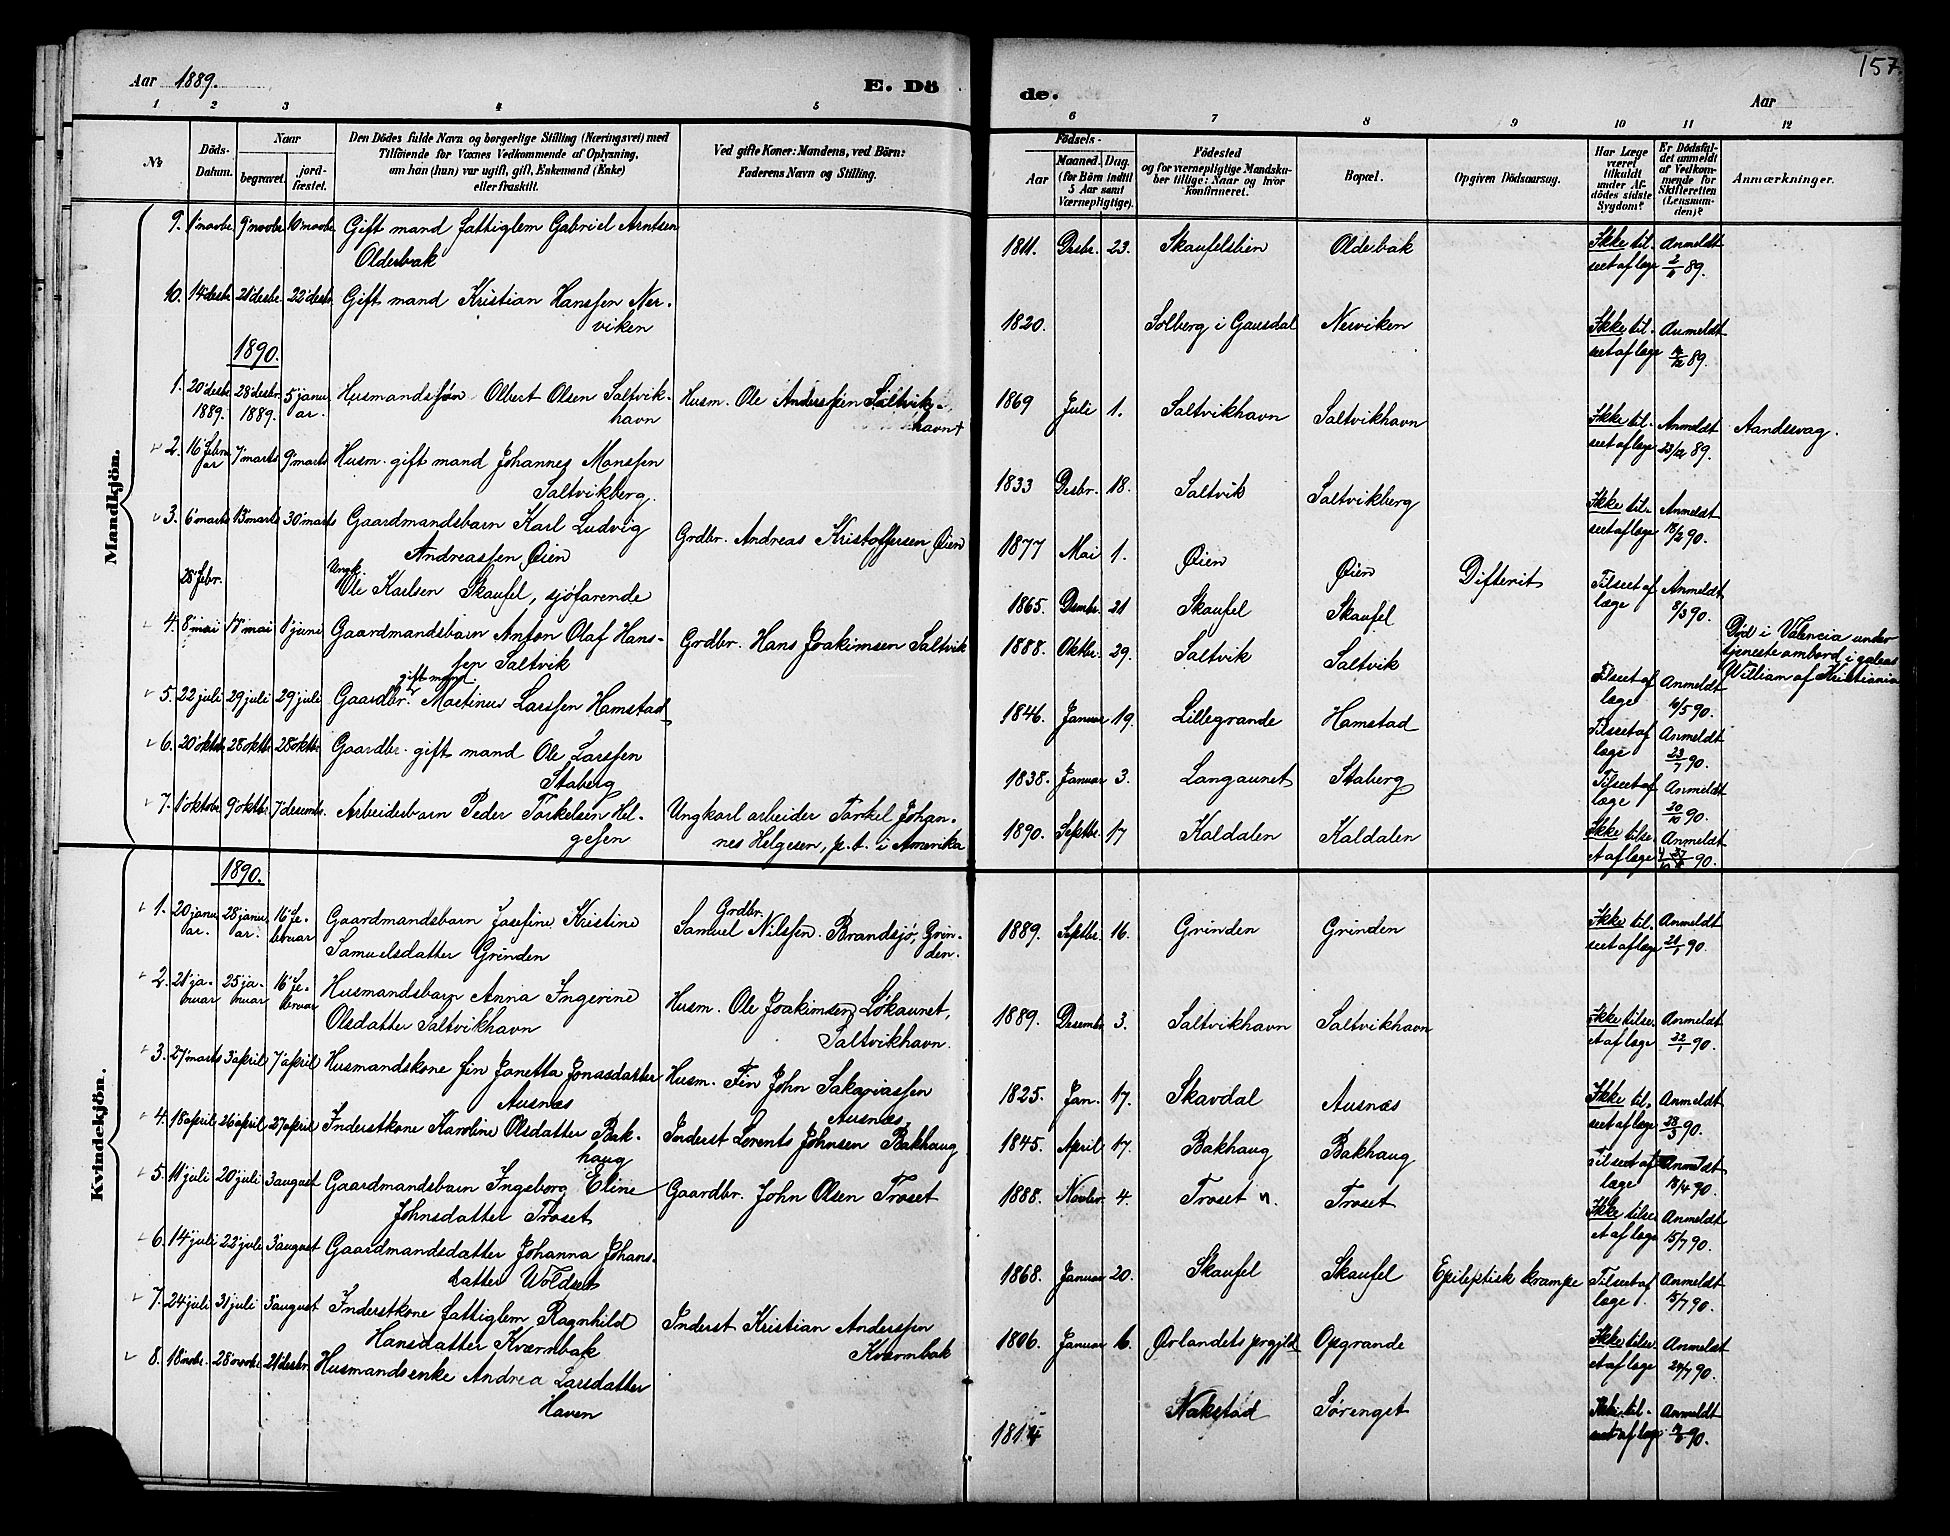 Aar 1889.
E. Dö
de.
157.
Aar
1 2 3 4 5
6 7 8 9 10 11 12
No
Döds-
Datum.
Naar
begravet.
jord-
fæstet.
Den Dödes fulde Navn og borgerlige Stilling (Næringsvei) med
Tilföiende for Voxnes Vedkommende af Oplysning,
om han (hun) var ugift, gift, Enkemand (Enke)
eller fraskilt.
Ved gifte Koner: Mandens, ved Börn:
Faderens Navn og Stilling.
Födsels-
Aar
Maaned. Dag.
(for Börn indtil
5 Aar samt
Værnepligtige).
Födested
og for værnepligtige Mandska-
ber tillige: Naar og hvor
Konfirmeret.
Bopæl.
Opgiven Dödsaarsag.
Har Læge
været
tilkaldt
under Af-
dödes sidste
Sygdom?
Er Dödsfal-
det anmeldt
af Vedkom-
mende for
Skifteretten
(Lensman-
den)?
Anmærkninger.
Mandkjön.
9. 1' novbr. 9' novbr. 10' novbr. Gift mand fattiglem Gabriel Arntsen
Olderbak
1811. Desbr. 23. Skaufelslien Olderbak Ikke til-
seet af læge Anmeldt
89.
10. 14' desbr. 21' desbr. 22' desbr. Gift mand Kristian Hanssen Ner-
viken
1820. Solberg i Gausdal Nerviken Ikke til-
seet af læge Anmeldt
89.
1890.
1. 20' desbr. 1889. 28' desbr. 1889. 5' janu-
ar. Husmandssøn Olbert Olsen Saltvik-
havn Husm. Ole Anderssen Saltvik-
havn
1869 Juli 1. Saltvikhavn Saltvikhavn Ikke til-
seet af læge Anmeldt
23/12 89. Aandssvag.
2. 16' febru-
ar 7' marts 9' marts Husm. gift mand Johannes Monssen
Saltvikberg.
1833 Desbr. 18. Saltvik Saltvikberg Ikke til-
seet af læge Anmeldt
18/2 90.
3. 6' marts 13' marts 30' marts Gaardmandsbarn Karl Ludvig
Andreassen Øien Grdbr. Andreas Kristoffersen Øien
1877 Mai 1. Øien Øien Difterit Tilseet af
læge Anmeldt
8/3 90.
28' febr. Ungk.
Ole Karlsen Skaufel, sjøfarende
1865. Desmbr. 21 Skaufel Skaufel
Død i Valencia under
tjeneste ombord i galeas
William af Kristiania
4. 8' mai 18' mai 1' juni Gaardmandsbarn Anton Olaf Hans-
sen Saltvik Grdbr. Hans Joakimsen Saltvik
1888. Oktbr. 29. Saltvik Saltvik Tilseet af
læge Anmeldt
10/5 90.
5. 22' juli 29' juli 29' juli gift mand
Gaardbr. Martinus Larssen Hamstad
1846. Januar 19. Lillegrande Hamstad Tilseet af
læge Anmeldt
23/7 90.
6. 20' oktbr. 28' oktbr. 28' oktbr. Gaardbr. gift mand Ole Larssen
Staberg
1838. Januar 3. Langaunet Staberg Tilseet af
læge Anmeldt
20/10 90.
7. 1' oktobr. 9' oktbr. 7' desembr. Arbeiderbarn Peder Torkelsen Hel-
gesen Ungkarl arbeider Torkel Johan-
nes Helgesen, p.t. i Amerika
1890. Septbr. 17 Kaldalen Kaldalen Ikke tilse-
et af læge Anmeldt
90.
Kvindekjön.
1890.
1. 20' janu-
ar. 28' janu-
ar. 16' fe-
bruar Gaardmandsbarn Josefine Kristine
Samuelsdatter Grinden Grdbr.
Samuel Nilssen Brandsjø, Grin-
den.
1889. Septbr. 16. Grinden Grinden Ikke til-
seet af læge Anmeldt
21/1 90.
2. 21' ja-
nuar 25' ja-
nuar 16' fe-
bruar Husmandsbarn Anna Ingerine
Olsdatter Saltvikhavn Husm. Ole Joakimsen Løkaunet,
Saltvikhavn.
1889. Desembr. 3. Saltvikhavn Saltvikhavn Ikke tilse-
et af læge Anmeldt
22/1 90.
3. 27' marts 3' april 7' april Husmandskone fin Janetta Jonasdatter
Ausnæs Husm. Fin John Sakariassen
Ausnæs
1825. Jan. 17. Skavdal Ausnæs Ikke til-
seet af læge Anmeldt
28/3 90.
4. 18' april 26' april 27' april Inderstkone Karoline Olsdatter Bak-
haug Inderst Lorents Johnsen Bakhaug
1845. April 17. Bakhaug Bakhaug Tilseet af
læge Anmeldt
18/4 90.
5. 11' juli 20' juli 3' august Gaardmandsbarn Ingeborg Eline
Johnsdatter Troset Gaardbr. John Olsen Troset
1888. Novbr. 4. Troset Troset Ikke tilse-
et af læge Anmeldt
15/7 90.
6. 14' juli 22' juli 3' august Gaardmandsdatter Johanna Johans-
datter Woldset
1868. Januar 20. Skaufel Skaufel Epileptisk krampe Tilseet af
læge. Anmeldt
15/7 90.
7. 24' juli 31' juli 3' august Inderstkone fattiglem Ragnhild
Hansdatter Kværnbak Inderst Kristian Anderssen
Kværnbak
1806. Januar 6. Ørlandets prgjld Opgrande Ikke tilse-
et af læge Anmeldt
24/7 90.
8. 18' novbr. 28' novbr. 21' desbr. Husmandsenke Andrea Larsdatter
Haven
1814 Nakstad Sørenget Ikke til-
seet af læge Anmeldt
90.